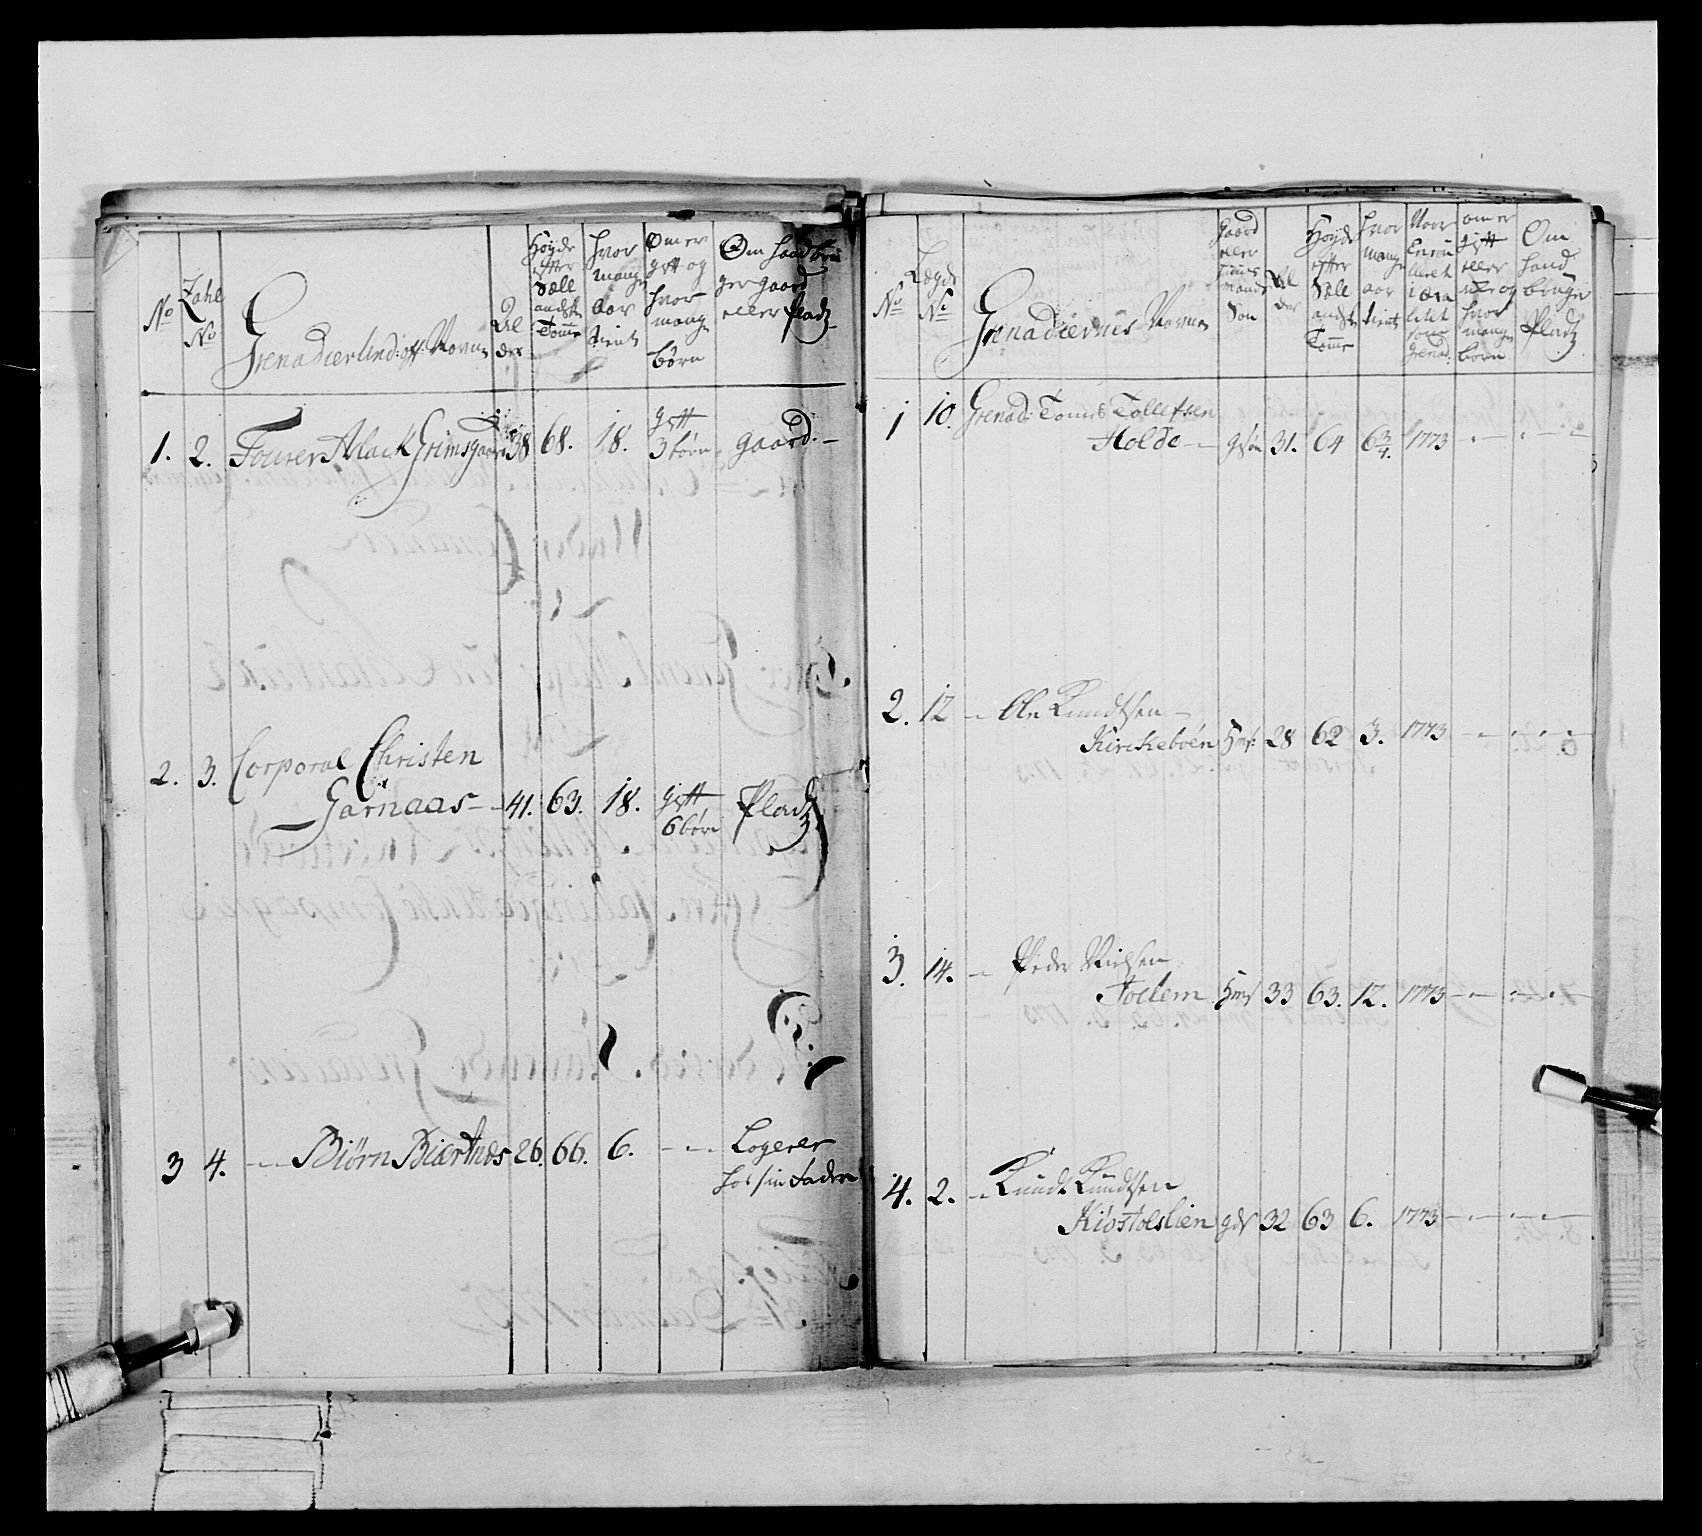 No
Zahl
No
Grenadier Und: off: Navne
Al
der
Høyde
efter
Sælle
andske
Tomme
hvor
mange
aar
tient
Om er
gift og
hvor
mange
børn
Om hand bru
ger gaard
eller Pladz
1. 2. Fourer Aslack Grimsgaard 38 68. 18. gift
3 børn gaard. —
2. 3. Corporal Christen
Garnaas — 41. 63. 18. gift
6 børn Pladz
3 4. — Biørn Biertnæs 26. 66. 6. — Logerer
hos sin Fader
No
Lægds
No
Grenadiernes Navne
Gaard
eller
Huus
mands
Søn
Al
der
Høyde
efter
Sælle
andske
Tomme
hvor
mange
aar
tient
om er
gift
eller
ei og
hvor
mange
børn
Om
hand
bruger
Pladz
1 10. Grenad: Tomes Tollefsen
Holde — gsøn 31. 64 6 3/4. 1773 — — —
2. 12 — Ole Knudtsen —
Kirckebøen Hms: 28 62 3. 1773 — — —
3. 14. — Peder Nielsen
Tollem Hms 33 63. 12. 1773 — — —
4. 2. — Knudt Knudtsen
Kiøstolslien gds 32 63 6. 1773 — — —